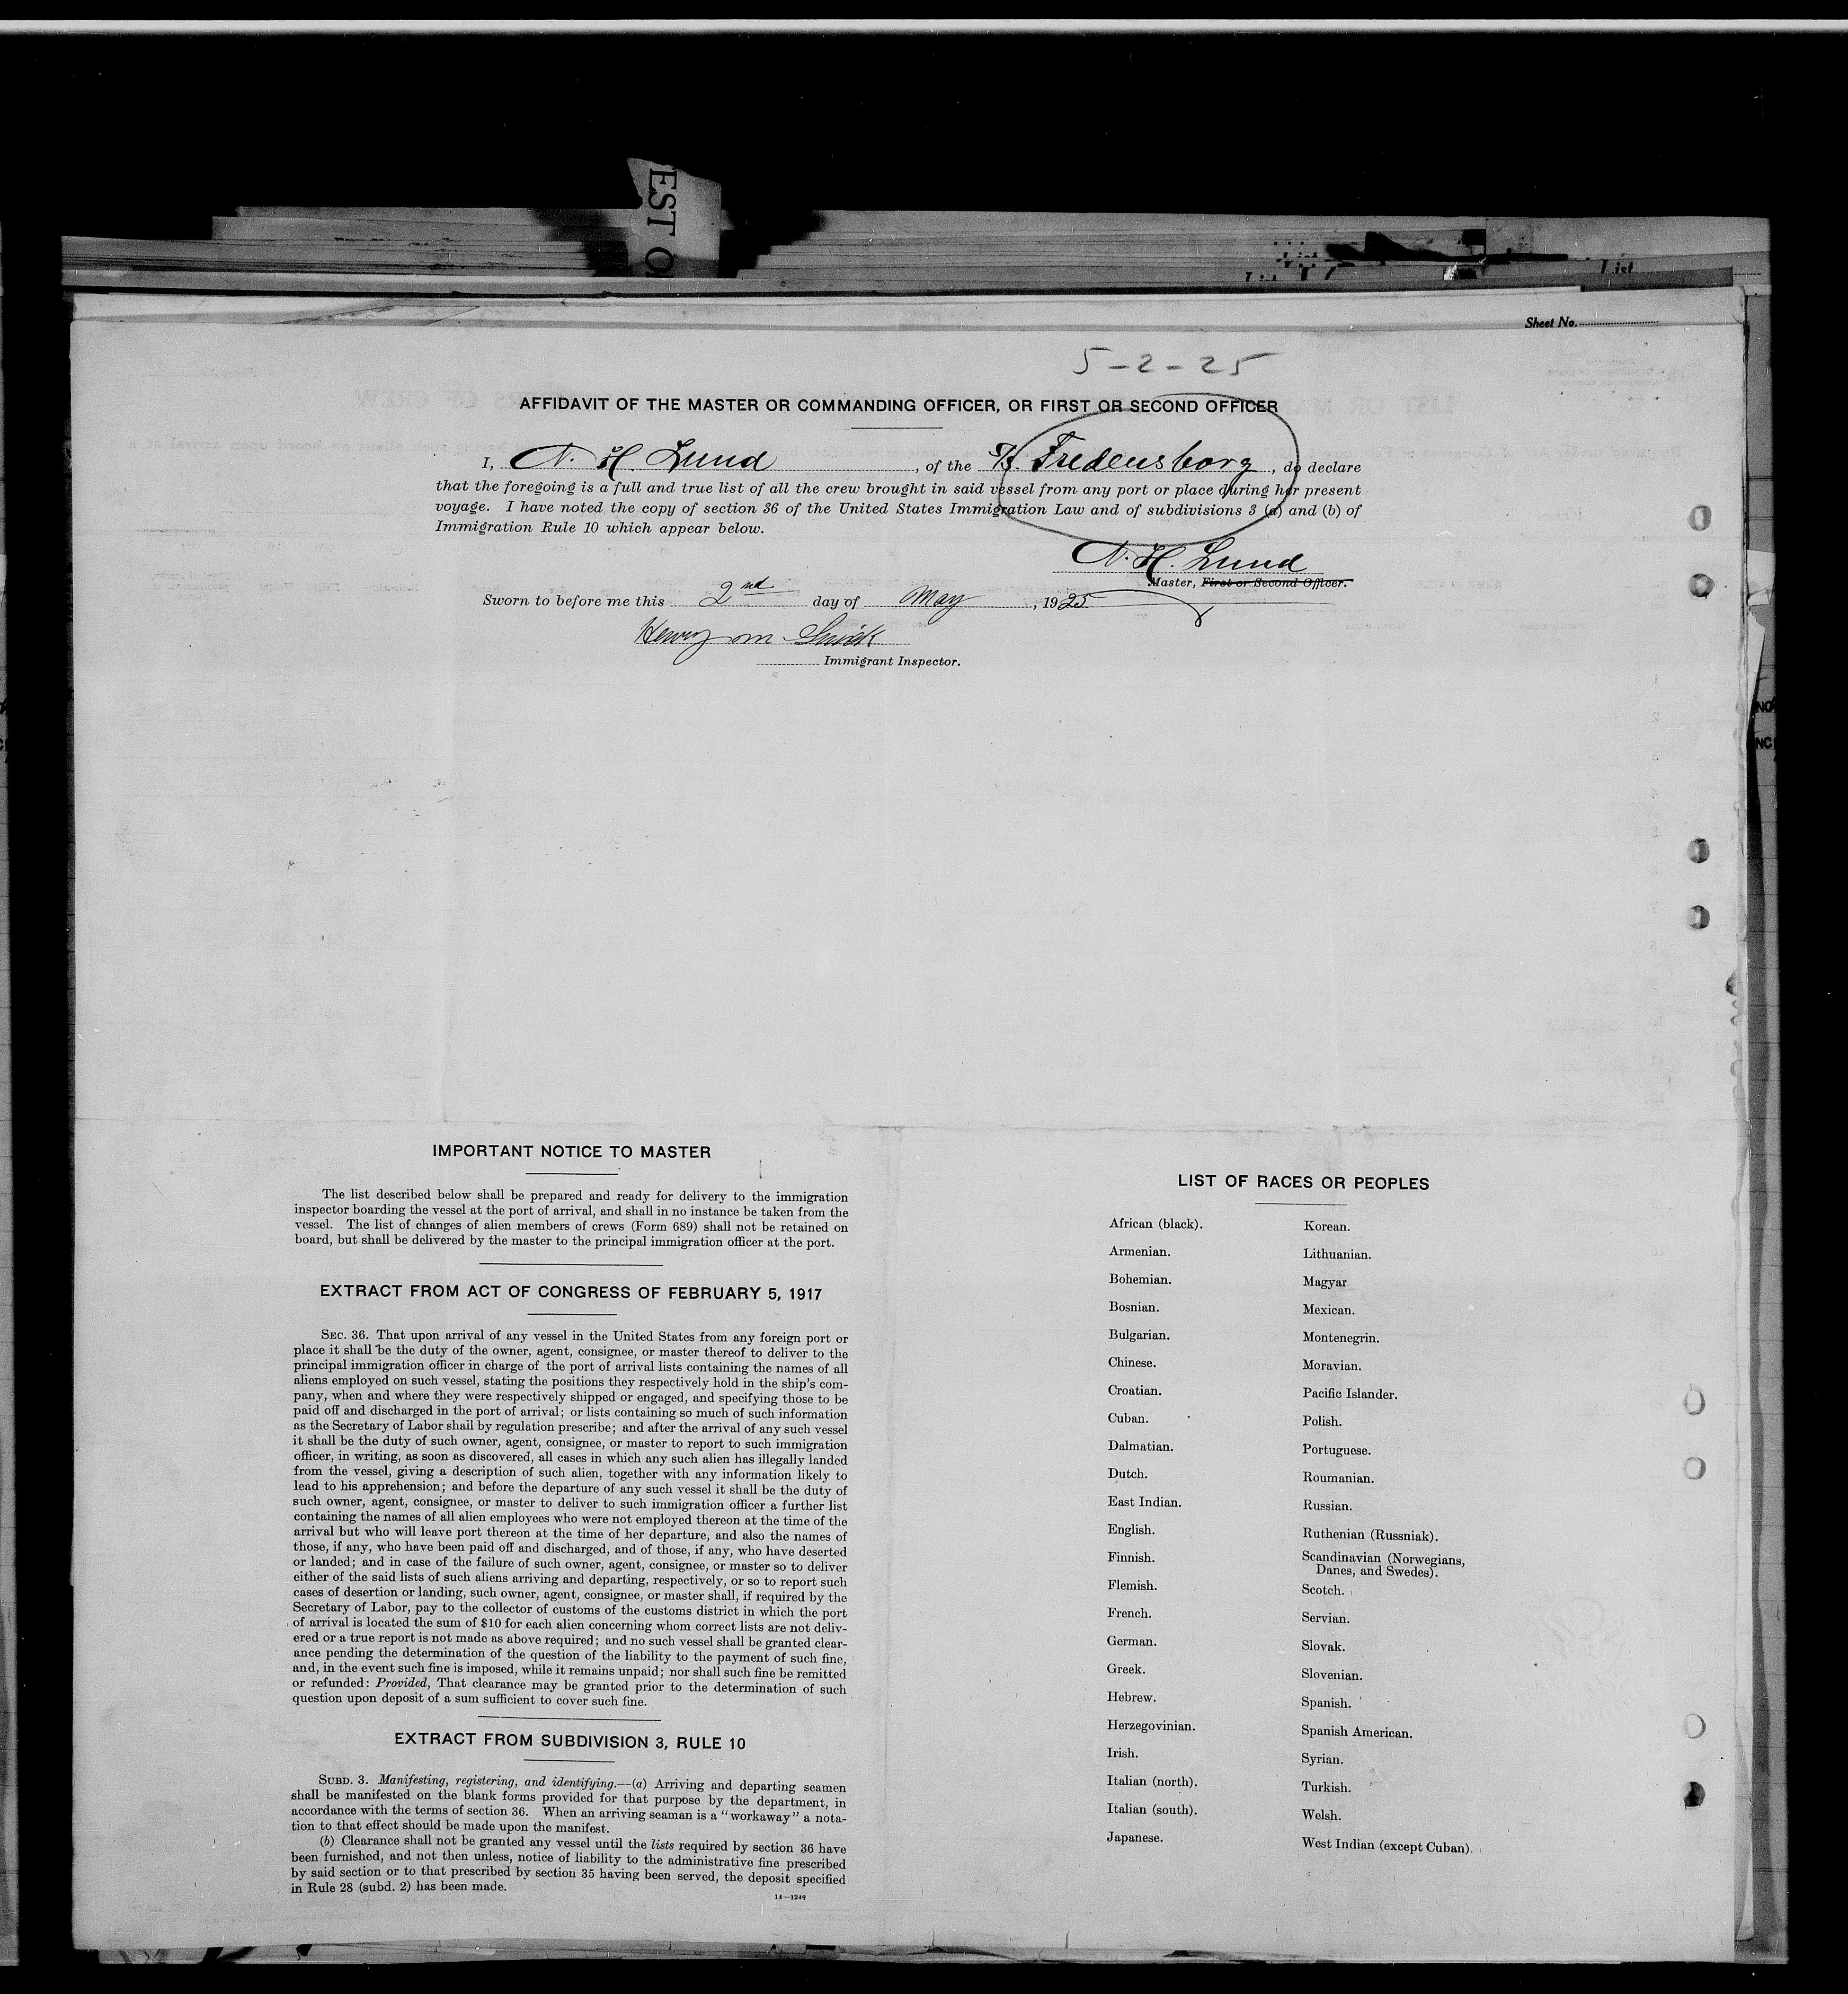 EST O
List
List
List
Sheet No.
5-2-25
AFFIDAVIT OF THE MASTER OR COMMANDING OFFICER, OR FIRST OR SECOND OFFICER
I, N. H. Lund, of the S/S. Fredensborg, do declare
that the foregoing is a full and true list of all the crew brought in said vessel from any port or place during her present
voyage. I have noted the copy of section 36 of the United States Immigration Law and of subdivisions 3 (a) and (b) of
Immigration Rule 10 which appear below.
N. H. Lund
Master, First or Second Officer.
Sworn to before me this 2nd day of May, 1925
Henry M
Immigrant Inspector.
IMPORTANT NOTICE TO MASTER
The list described below shall be prepared and ready for delivery to the immigration
inspector boarding the vessel at the port of arrival, and shall in no instance be taken from the
vessel. The list of changes of alien members of crews (Form 689) shall not be retained on
board, but shall be delivered by the master to the principal immigration officer at the port.
EXTRACT FROM ACT OF CONGRESS OF FEBRUARY 5, 1917
SEC. 36. That upon arrival of any vessel in the United States from any foreign port or
place it shall be the duty of the owner, agent, consignee, or master thereof to deliver to the
principal immigration officer in charge of the port of arrival lists containing the names of all
aliens employed on such vessel, stating the positions they respectively hold in the ship's com-
pany, when and where they were respectively shipped or engaged, and specifying those to be
paid off and discharged in the port of arrival; or lists containing so much of such information
as the Secretary of Labor shall by regulation prescribe; and after the arrival of any such vessel
it shall be the duty of such owner, agent, consignee, or master to report to such immigration
officer, in writing, as soon as discovered, all cases in which any such alien has illegally landed
from the vessel, giving a description of such alien, together with any information likely to
lead to his apprehension; and before the departure of any such vessel it shall be the duty of
such owner, agent, consignee, or master to deliver to such immigration officer a further list
containing the names of all alien employees who were not employed thereon at the time of the
arrival but who will leave port thereon at the time of her departure, and also the names of
those, if any, who have been paid off and discharged, and of those, if any, who have deserted
or landed; and in case of the failure of such owner, agent, consignee, or master so to deliver
either of the said lists of such aliens arriving and departing, respectively, or so to report such
cases of desertion or landing, such owner, agent, consignee, or master shall, if required by the
Secretary of Labor, pay to the collector of customs of the customs district in which the port
of arrival is located the sum of $10 for each alien concerning whom correct lists are not deliv-
ered or a true report is not made as above required; and no such vessel shall be granted clear-
ance pending the determination of the question of the liability to the payment of such fine,
and, in the event such fine is imposed, while it remains unpaid; nor shall such fine be remitted
or refunded: Provided, That clearance may be granted prior to the determination of such
question upon deposit of a sum sufficient to cover such fine.
EXTRACT FROM SUBDIVISION 3, RULE 10
SUBD. 3. Manifesting, registering, and identifying.—(a) Arriving and departing seamen
shall be manifested on the blank forms provided for that purpose by the department, in
accordance with the terms of section 36. When an arriving seaman is a "workaway" a nota-
tion to that effect should be made upon the manifest.
(b) Clearance shall not be granted any vessel until the lists required by section 36 have
been furnished, and not then unless, notice of liability to the administrative fine prescribed
by said section or to that prescribed by section 35 having been served, the deposit specified
in Rule 28 (subd. 2) has been made.
14—1249
LIST OF RACES OR PEOPLES
African (black).
Armenian.
Bohemian.
Bosnian.
Bulgarian.
Chinese.
Croatian.
Cuban.
Dalmatian.
Dutch.
East Indian.
English.
Finnish.
Flemish.
French.
German.
Greek.
Hebrew.
Herzegovinian.
Irish.
Italian (north).
Italian (south).
Japanese.
Korean.
Lithuanian.
Magyar
Mexican.
Montenegrin.
Moravian.
Pacific Islander.
Polish.
Portuguese.
Roumanian.
Russian.
Ruthenian (Russniak).
Scandinavian (Norwegians,
Danes, and Swedes).
Scotch.
Servian.
Slovak.
Slovenian.
Spanish.
Spanish American.
Syrian.
Turkish.
Welsh.
West Indian (except Cuban).